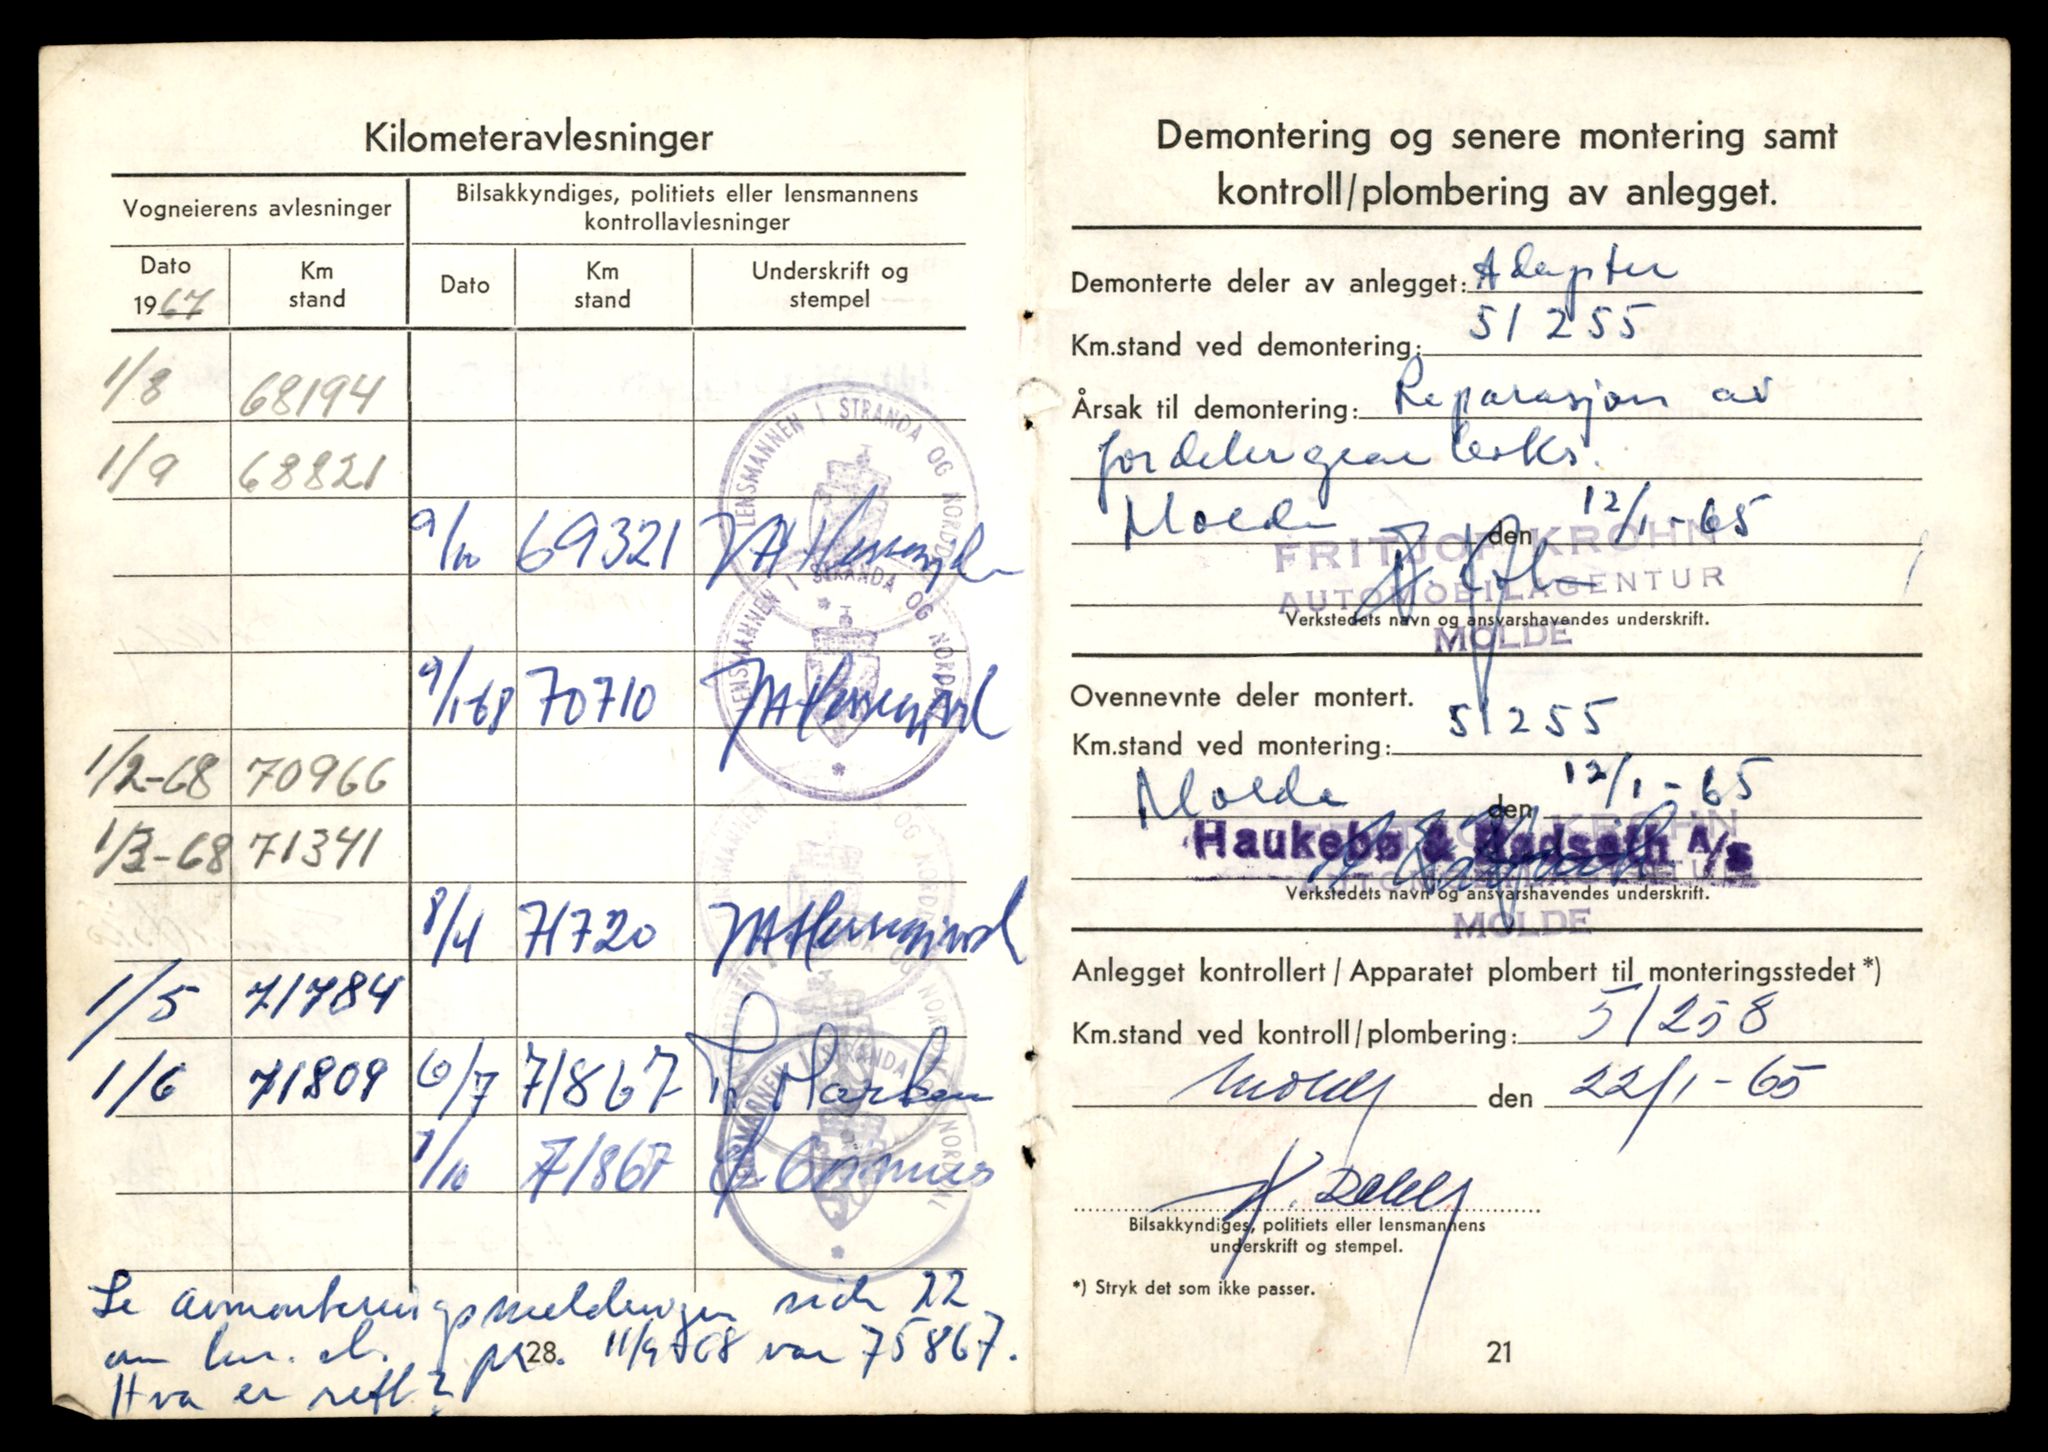 Kilometeravlesninger
Vogneierens avlesninger
Bilsakkyndiges, politiets eller lensmannens
kontrollavlesninger
Dato
1967
Km
stand
Dato
Km
stand
Underskrift og
stempel
1/8 68194
1/9 68821
9/10 69321
9/1-68 70710
1/2-68 70966
1/3-68 71341
8/4 71720
1/5 71784
1/6 71809 6/7 71867
1/10 71867
LENSMANNEN I STRANDA OG NORDDAL
LENSMANNEN I STRANDA OG NORDDAL
Se avmonteringsmeldingen side 22
om km. st. pr. 11/9-68 var 75867.
Hva er rett?
28
Demontering og senere montering samt
kontroll/plombering av anlegget.
Demonterte deler av anlegget: Adapter
Km.stand ved demontering: 51255
Årsak til demontering: Reparasjon av
fordelergear leks.
Molde den 12/1-65
FRITJOF KROHN
AUTOMOBILAGENTUR
MOLDE
Verkstedets navn og ansvarshavendes underskrift.
Ovennevnte deler montert.
Km.stand ved montering: 51255
Molde den 12/1-65
Haukebø & Rødseth A/S
MOLDE
Verkstedets navn og ansvarshavendes underskrift.
Anlegget kontrollert / Apparatet plombert til monteringsstedet *)
Km.stand ved kontroll/plombering: 51258
Molde den 22/1-65
Bilsakkyndiges, politiets eller lensmannens
underskrift og stempel.
*) Stryk det som ikke passer.
21